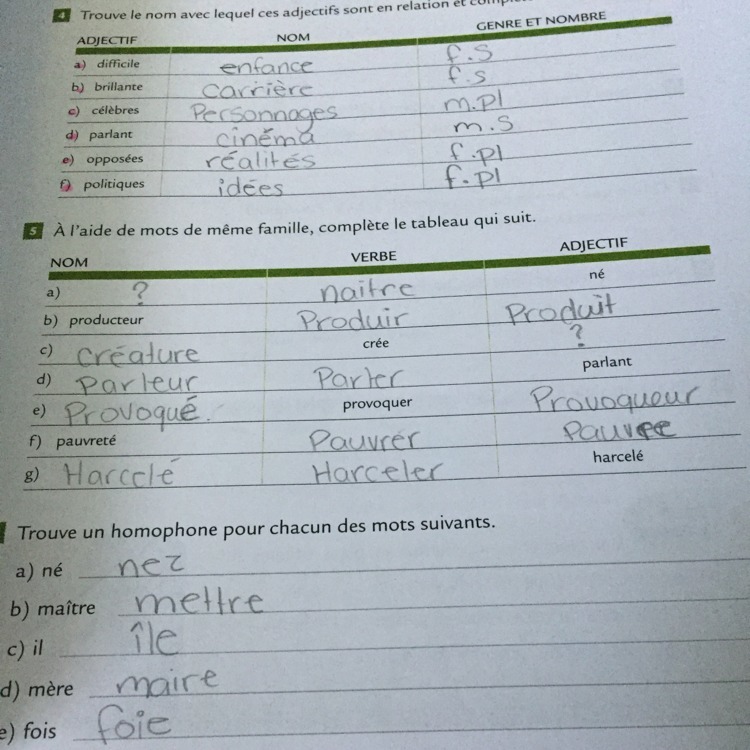 4 Trouve le nom avec lequel ces adjectifs sont en relation et
ADJECTIF NOM GENRE ET NOMBRE
a) difficile enfance f.s
b) brillante carrière f.s
c) célèbres Personnages m.pl
d) parlant cinéma m.s
e) opposées réalités f.pl
f) politiques idées f.pl
5 À l'aide de mots de même famille, complète le tableau qui suit.
NOM VERBE ADJECTIF
a) ? naitre né
b) producteur Produir Produit
c) créature crée ?
d) Parleur Parler parlant
e) Provoqué. provoquer Provoqueur
f) pauvreté Pauvrer Pauvre
g) Harcelé Harceler harcelé
Trouve un homophone pour chacun des mots suivants.
a) né nez
b) maître mettre
c) il île
d) mère maire
e) fois foie